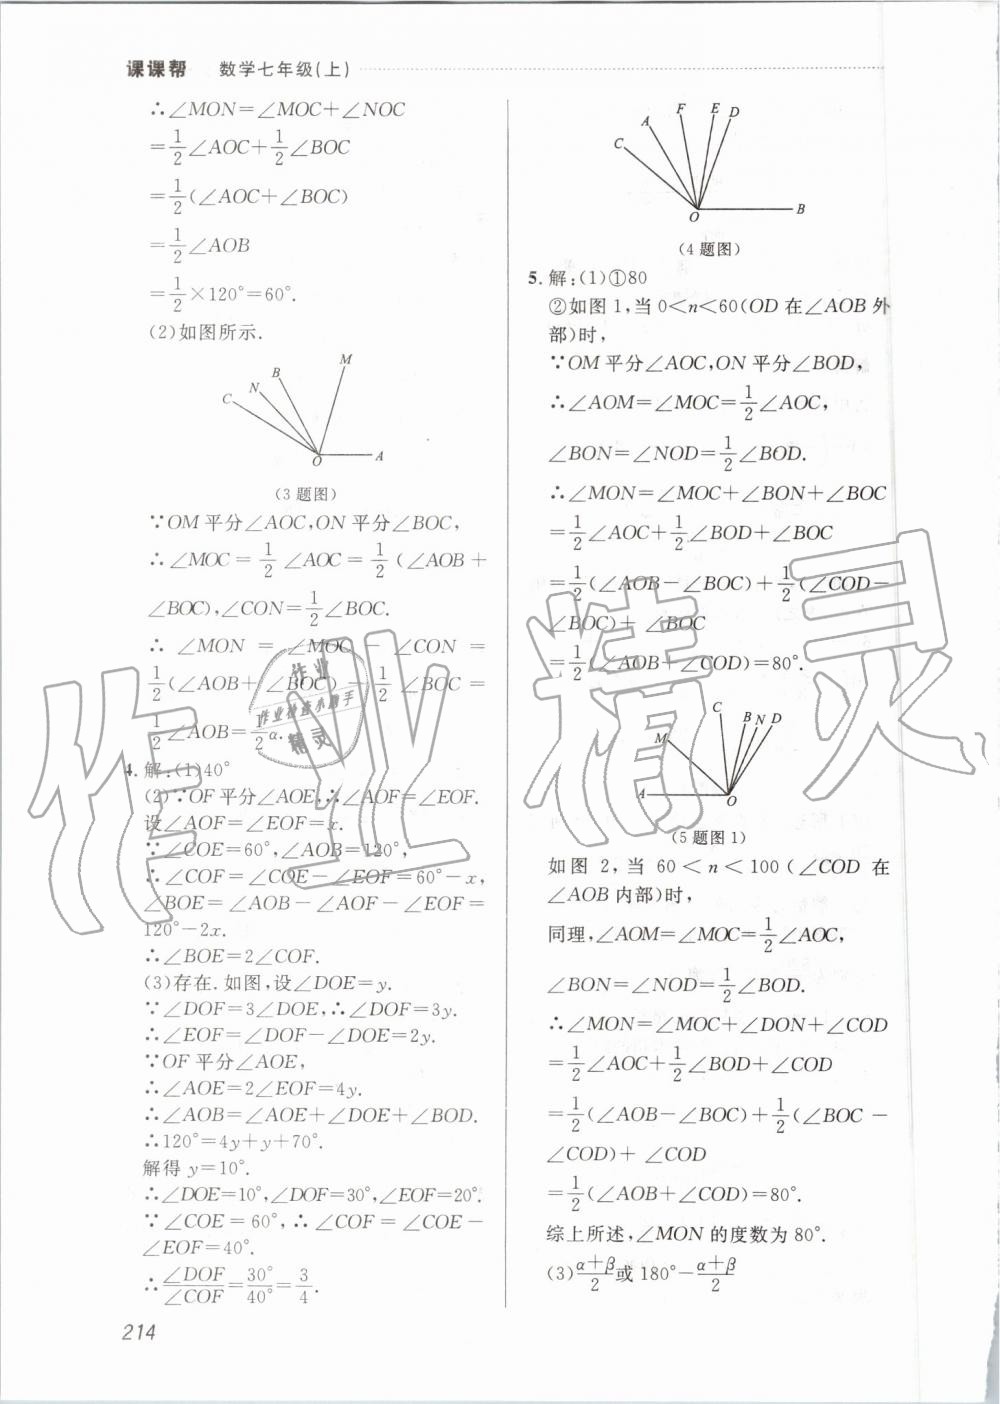 课课帮 数学七年级(上)
∴∠MON=∠MOC+∠NOC
=1/2∠AOC+1/2∠BOC
=1/2(∠AOC+∠BOC)
=1/2∠AOB
=1/2×120°=60°.
(2)如图所示.
M
B
N
C
O
A
(3题图)
∵OM平分∠AOC,ON平分∠BOC,
∴∠MOC=1/2∠AOC=1/2(∠AOB+
∠BOC),∠CON=1/2∠BOC.
∴∠MON=∠MOC-∠CON=
1/2(∠AOB+∠BOC)-1/2∠BOC=
1/2∠AOB=1/2α.
4. 解:(1)40°
(2)∵OF平分∠AOE,∴∠AOF=∠EOF.
设∠AOF=∠EOF=x.
∵∠COE=60°,∠AOB=120°,
∴∠COF=∠COE-∠EOF=60°-x,
∠BOE=∠AOB-∠AOF-∠EOF=
120°-2x.
∴∠BOE=2∠COF.
(3)存在.如图,设∠DOE=y.
∵∠DOF=3∠DOE,∴∠DOF=3y.
∴∠EOF=∠DOF-∠DOE=2y.
∵OF平分∠AOE,
∴∠AOE=2∠EOF=4y.
∴∠AOB=∠AOE+∠DOE+∠BOD.
∴120°=4y+y+70°.
解得y=10°.
∴∠DOE=10°,∠DOF=30°,∠EOF=20°.
∵∠COE=60°,∴∠COF=∠COE-
∠EOF=40°.
∴∠DOF/∠COF=30°/40°=3/4.
214
F E D
A
C
O
B
(4题图)
5. 解:(1)①80
②如图1,当0<n<60(OD在∠AOB外
部)时,
∵OM平分∠AOC,ON平分∠BOD,
∴∠AOM=∠MOC=1/2∠AOC,
∠BON=∠NOD=1/2∠BOD.
∴∠MON=∠MOC+∠BON+∠BOC
=1/2∠AOC+1/2∠BOD+∠BOC
=1/2(∠AOB-∠BOC)+1/2(∠COD-
∠BOC)+∠BOC
=1/2(∠AOB+∠COD)=80°.
C B N D
M
A
O
(5题图1)
如图2,当60<n<100(∠COD在
∠AOB内部)时,
同理,∠AOM=∠MOC=1/2∠AOC,
∠BON=∠NOD=1/2∠BOD.
∴∠MON=∠MOC+∠DON+∠COD
=1/2∠AOC+1/2∠BOD+∠COD
=1/2(∠AOB-∠BOC)+1/2(∠BOC-
∠COD)+∠COD
=1/2(∠AOB+∠COD)=80°.
综上所述,∠MON的度数为80°.
(3)α+β/2或180°-α+β/2
作业精灵
作业
作业检查小助手
精灵